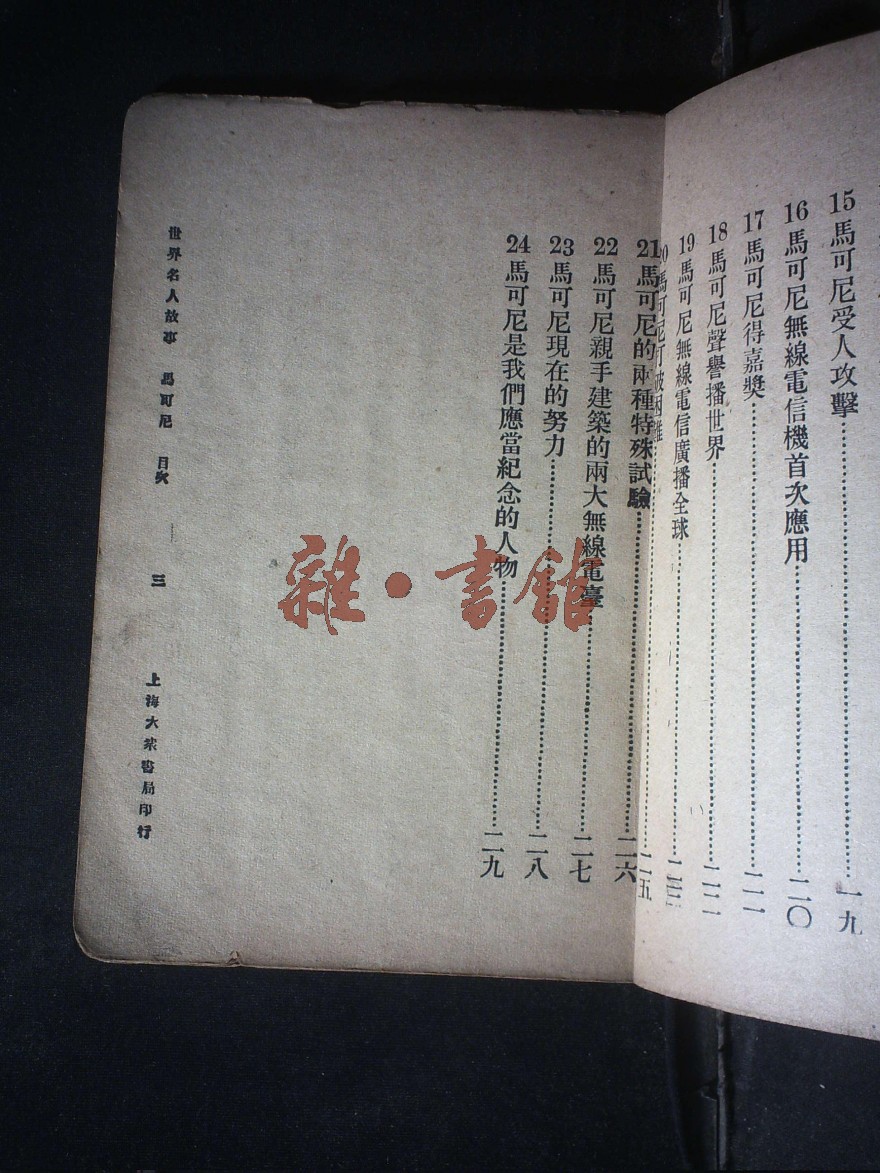 15 馬可尼受人攻擊……一九
16 馬可尼無線電信機首次應用……二〇
17 馬可尼得嘉獎……二一
18 馬可尼聲譽播世界……二二
19 馬可尼無線電信廣播全球……二三
20 馬可尼打破困難……二五
21 馬可尼的兩種特殊試驗……二六
22 馬可尼親手建築的兩大無線電臺……二七
23 馬可尼現在的努力……二八
24 馬可尼是我們應當紀念的人物……二九
世界名人故事 馬可尼 目次 三 上海大衆書局印行
雜·書館